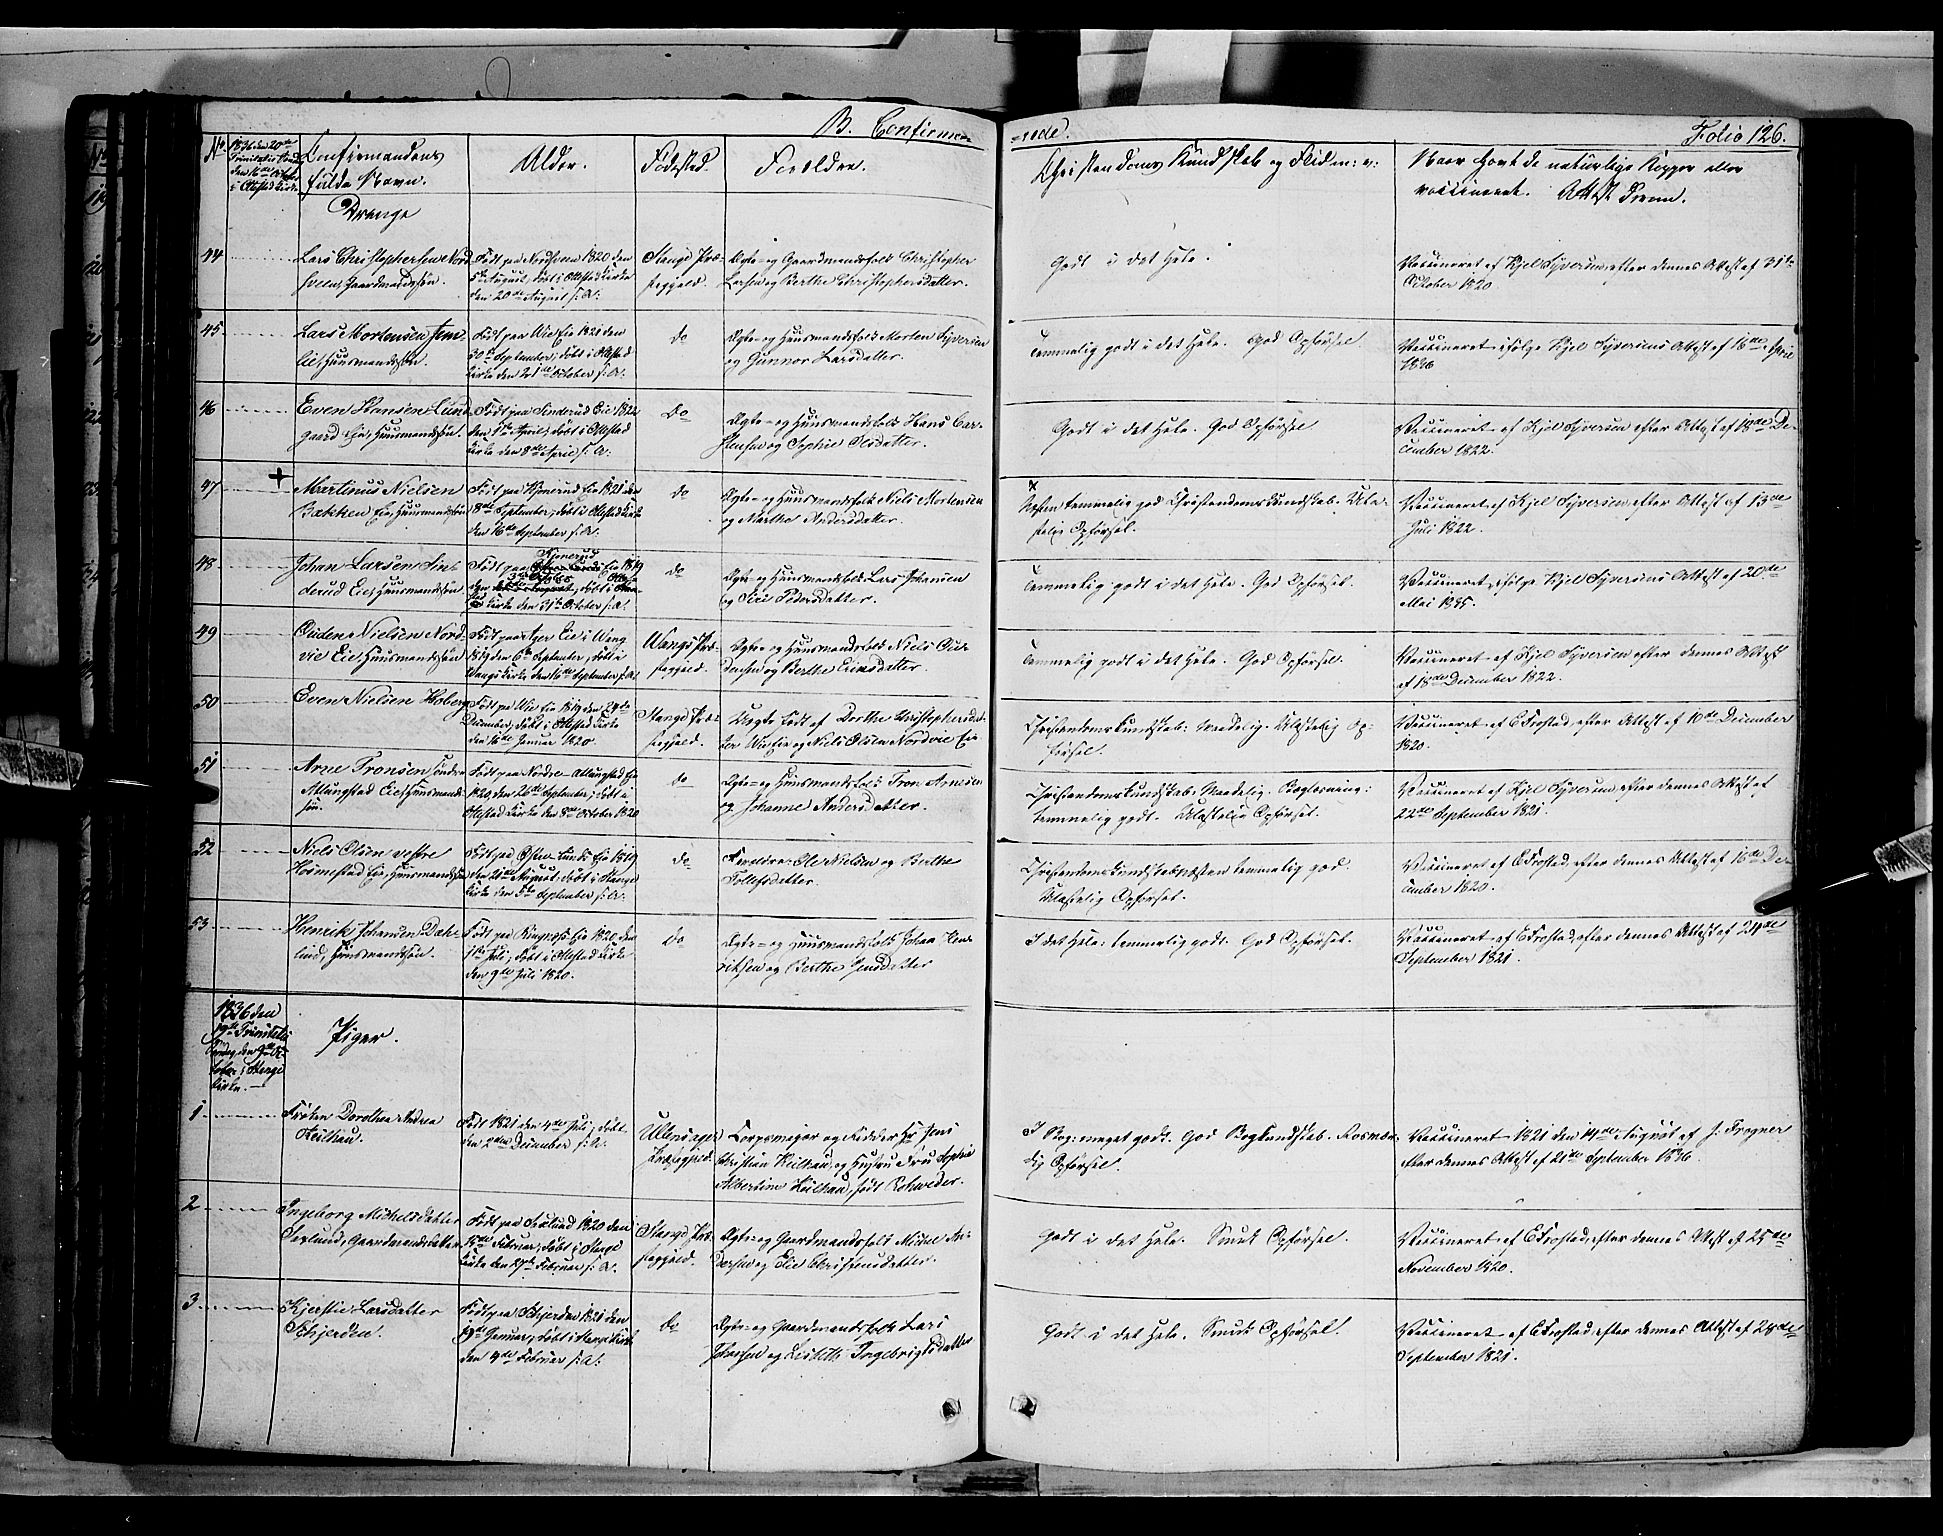 B. Confirme=
=rede.
Folio 126.
No
1836 den 20de
Trinitatis Søndag
den 16de October
i Ottestad Kirke
Confirmandens
fulde Navn.
Alder.
Fødested.
Forældre.
Christendoms Kundskab og Flid m: v:
Naar havt de naturlige Kopper eller
vaccineret. Attest derom.
Drenge
44
Lars Christophersen Nord-
sveen, Gaardmandssøn.
Født paa Nordsveen 1820 den
5te August, døbt i Ottestad Kirke
den 20de August s: A:
Stange Præ-
stegjeld.
Ægte- og Gaardmandsfolk Christopher
Larsen og Berthe Christophersdatter.
Godt i det Hele.
Vaccineret af Kjel Syversen, efter dennes Attest af 31te
October 1820.
45
Lars Mortensen
Eie, Huusmandssøn.
Født paa Wie Eie 1821 den
30te September, døbt i Ottestad
Kirke den 21de October s: A:
do
Ægte- og Huusmandsfolk Morten Syversen
og Gunnor Larsdatter.
Temmelig godt i det Hele. God Opførsel.
Vaccineret ifølge Kjel Syversens Attest af 16de April
1826
46
Even Hansen Lund-
gaard Eie, Huusmandssøn.
Født paa Sinderud Eie 1822
den 1ste April, døbt i Ottestad
Kirke den 8de April s: A:
Do
Ægte- og Huusmandsfolk Hans Car-
stensen og Sophie Olsdatter.
Godt i det Hele. God Opførsel
Vaccineret af Kjel Syversen efter Attest af 18de De-
cember 1822.
47
+
Martinus Nielsen
Bækken Eie, Huusmandssøn
Født paa Kjonerud Eie 1821 den
8de September, døbt i Ottestad Kirke
den 16de September s: A:
do
Ægte- og Huusmandsfolk Niels Mortensen
og Marthe Andersdatter.
x
Næsten temmelig god Christendoms Kundskab. Ula-
stelig Opførsel.
Vaccineret af Kjel Syversen efter Attest af 13de
Juli 1822.
48
Johan Larsen Sin-
derud Eie, Huusmandssøn.
Kjonerud
Født paa Eie 1819
den døbt i Otte-
Kirke den 31te October s: A:
do
Ægte- og Huusmandsfolk Lars Johansen
og Siri Pedersdatter.
Temmelig godt i det Hele. God Opførsel.
Vaccineret ifølge Kjel Syversens Attest af 20de
Mai 1835.
49
Ouden Nielsen Nord-
vie Eie, Huusmandssøn
Født paa Ager Eie i Wang
1819 den 6te September, døbt i
Wangs Kirke den 16de September s: A:
Wangs Præ-
stegjeld.
Ægte- og Huusmandsfolk Niels Ou-
densen og Berthe Eriksdatter.
Temmelig godt i det Hele. God Opførsel.
Vaccineret af Kjel Syversen efter dennes Attest
af 18de December 1822.
50
Even Nielsen Hoberg
Født paa Wie Eie 1819 den 29de
December, døbt i Ottestad Kirke
den 16de Januar 1820.
Stange Præ-
stegjeld.
Uægte født af Dorthe Christophersdat-
ter Wie Eie og Niels Olsen Nordvie Eie
Christendomskundskab: Maadelig. Ulastelig Op-
førsel.
Vaccineret af C Frostad, efter Attest af 10de December
1820.
51
Arne Tronsen søndre
Atlungstad Eie, Huusmands-
søn.
Født paa Nordre-Atlungstad Eie
1820, den 26de September, døbt i
Ottestad Kirke den 8de October 1820
do
Ægte- og Huusmandsfolk Tron Arnesen
og Johanne Andersdatter.
Christendomskundskab: Maadelig. Boglæsning:
temmelig godt. Ulastelig Opførsel.
Vaccineret af Kjel Syversen efter dennes Attest af
22de September 1821.
52
Niels Olsen vestre
Hørmestad Eie, Huusmandssøn
Født paa Østre-Lunds Eie 1819
den 21de August, døbt i Stange
Kirke den 5te September s: A:
do
Forældre: Ole Nielsen og Berthe
Tollefsdatter.
Christendoms Kundskab næsten temmelig god.
Ulastelig Opførsel.
Vaccineret af C Frostad, efter dennes Attest af 16de De-
cember 1820.
53
Henrik Johansen Dah-
lind, Huusmandssøn.
Født paa Ringnæs Eie 1820, den
1ste Juli, døbt i Ottestad Kirke
den 9de Juli 1820.
Do
Ægte- og Huusmandsfolk Johan Hen-
riksen og Berthe Jensdatter
I det Hele: temmelig godt. God Opførsel.
Vaccineret af C Frostad, efter dennes Attest af 24de
September 1821.
1836 den
19de Trinitatis
Søndag, den 9de Oc-
tober i Stange
Kirke.
Piger.
1
Frøken Dorothea Andrea
Keilhau.
Født 1821 den 4de Juli, døbt
den 2den December s: A:
Ullensager
Præstegjeld.
Corpsmajor og Ridder Hr Jens
Christian Keilhau, og Hustru Fru Sophie
Albertine Keilhau, født Rohweder.
I Bog: meget godt. God Bogkundskab. Rosvær-
dig Opførsel.
Vaccineret 1821 den 14de August af J: Frogner
efter dennes Attest af 21de September 1836.
2
Ingeborg Michelsdatter
Frøslund, Gaardmandsdatter
Født paa Frøslund 1820 den
15de Februar, døbt i Stange
Kirke den 27de Februar s: A:
Stange Præ-
stegjeld.
Ægte- og Gaardmandsfolk Michel An-
dersen og Elie Christensdatter.
Godt i det Hele. Smuk Opførsel.
Vaccineret af C Frostad, efter dennes Attest af 25de
November 1820.
3
Kjerstie Larsdatter
Schjerden.
Født paa Schjerden 1821 den
19de Januar, døbt i Stange Kirke
den 4de Februar s: A:
Do
Ægte- og Gaardmandsfolk Lars
Johnsen og Lisbeth Ingebrigtsdatter
Godt i det Hele. Smuk Opførsel.
Vaccineret af C Frostad, efter dennes Attest af 28de
September 1821.